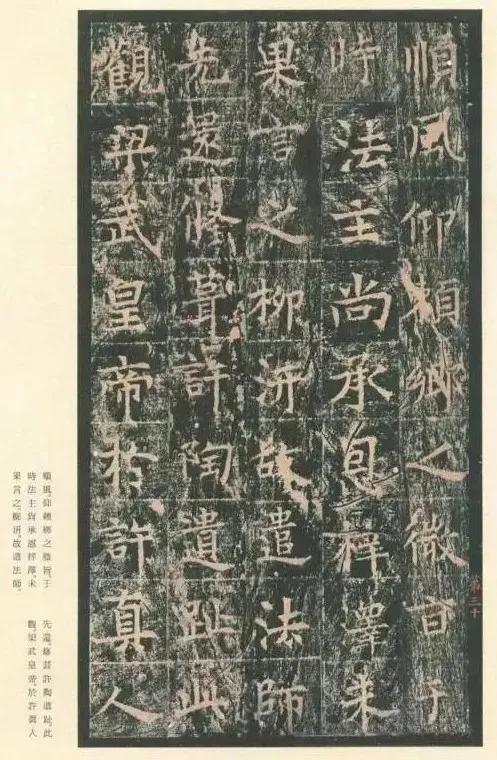 順風仰頼鄉之微旨于
時法主尚承恩梓澤未
果言之柳汧故遣法師
先還修葺許陶遺趾此
觀梁武皇帝於許真人
順風,仰賴鄉之微旨,于
時法主尚承恩梓澤,未
果言之,柳汧,故遣法師,
先還,修葺許陶遺趾,此
觀,梁武皇帝,於許真人